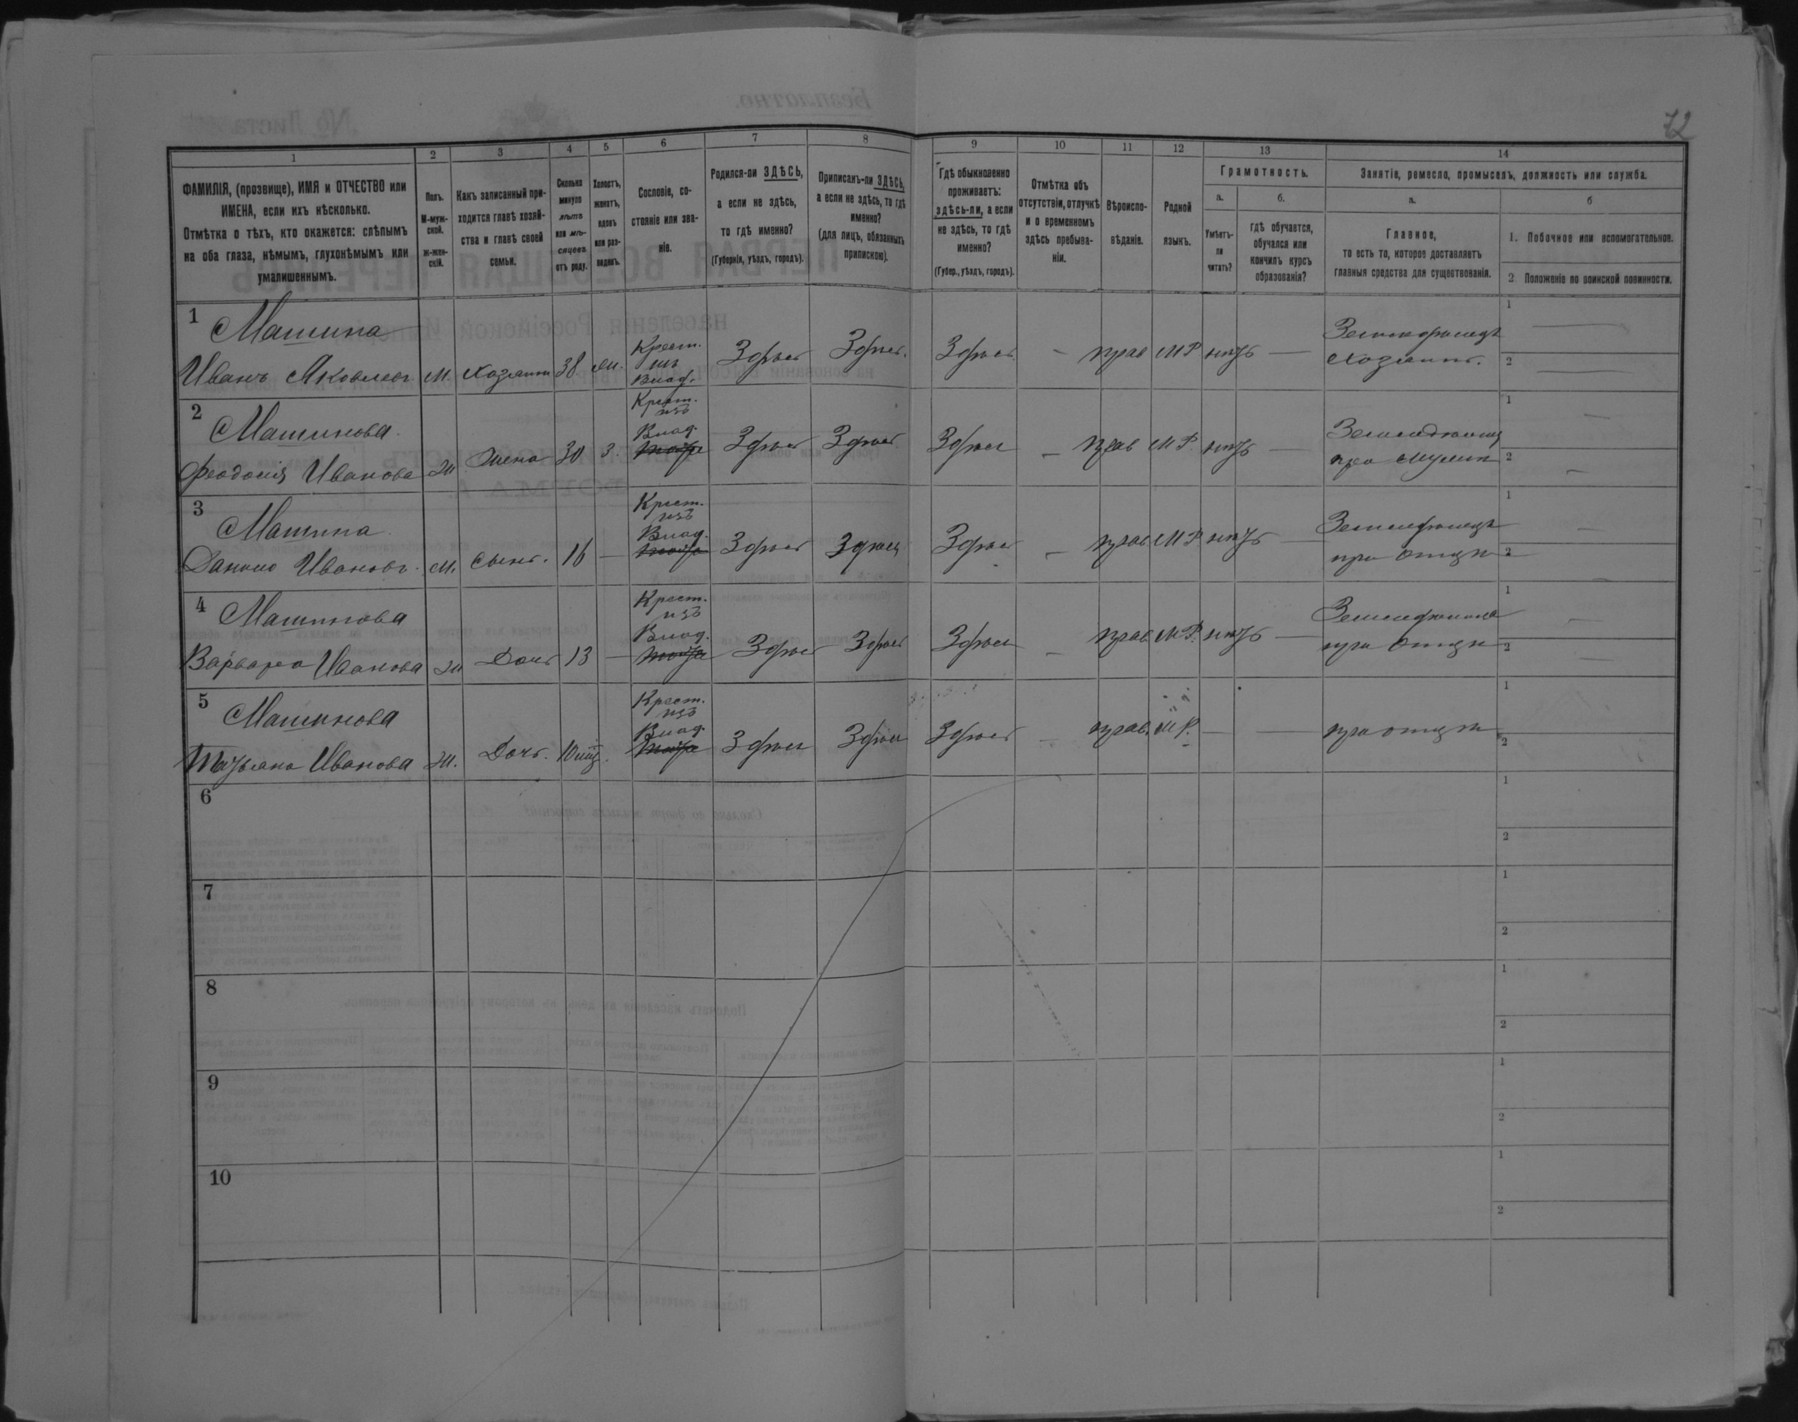 72
1 2 3 4 5 6 7 8 9 10 11 12 13 14
ФАМИЛІЯ, (прозвище), ИМЯ и ОТЧЕСТВО или
ИМЕНА, если ихъ нѣсколько.
Отмѣтка о тѣхъ, кто окажется: слѣпымъ
на оба глаза, нѣмымъ, глухонѣмымъ или
умалишеннымъ.
Полъ.
М-муж-
ской.
Ж-жен-
скій.
Какъ записанный при-
ходится главѣ хозяй-
ства и главѣ своей
семьи.
Сколько
минуло
лѣтъ
или мѣ-
сяцевъ
отъ роду.
Холостъ,
женатъ,
вдовъ
или раз-
веденъ.
Сословіе, со-
стояніе или зва-
ніе.
Родился-ли ЗДѢСЬ,
а если не здѣсь,
то гдѣ именно?
(Губернія, уѣздъ, городъ).
Приписанъ-ли ЗДѢСЬ,
а если не здѣсь, то гдѣ
именно?
(для лицъ, обязанныхъ
припискою).
Гдѣ обыкновенно
проживаетъ:
здѣсь-ли, а если
не здѣсь, то гдѣ
именно?
(Губер., уѣздъ, городъ).
Отмѣтка объ
отсутствіи, отлучкѣ
и о временномъ
здѣсь пребыва-
ніи.
Вѣроиспо-
вѣданіе.
Родной
языкъ.
Грамотность.
а.
Умѣетъ-
ли
читать?
б.
гдѣ обучается,
обучался или
кончилъ курсъ
образованія?
Занятіе, ремесло, промыселъ, должность или служба.
а.
Главное,
то есть то, которое доставляетъ
главныя средства для существованія.
б
1. Побочное или вспомогательное.
2. Положеніе по воинской повинности.
1 Машина
Крест.
из
Влад.
Иванъ Яковлев М. Хозяинъ 38 жен. Здѣсь Здѣсь Здѣсь – прав М.Р. нѣтъ — Земледѣлецъ
хозяинъ.
1
2
2 Машинова
Крест.
изъ
Влад.
Феодосія Иванова Ж. Жена 30 З. Здѣсь Здѣсь Здѣсь – прав М.Р. нѣтъ —
при мужѣ
1
2
3 Машина
Крест.
изъ
Влад.
Данило Ивановъ М. Сынъ 16 — Здѣсь Здѣсь Здѣсь – прав М.Р. нѣтъ — Земледѣлецъ
при отцѣ
1
2
4 Машинова
Крест.
изъ
Влад.
Варвара Иванова Ж Дочь 13 — Здѣсь Здѣсь Здѣсь – прав М.Р. нѣтъ —
при отцѣ
1
2
5 Машинова
Крест.
изъ
Влад.
Татьяна Иванова Ж. Дочь. Здѣсь Здѣсь Здѣсь – прав. М.Р. — — при отцѣ
1
2
6
1
2
7
1
2
8
1
2
9
1
2
10
1
2